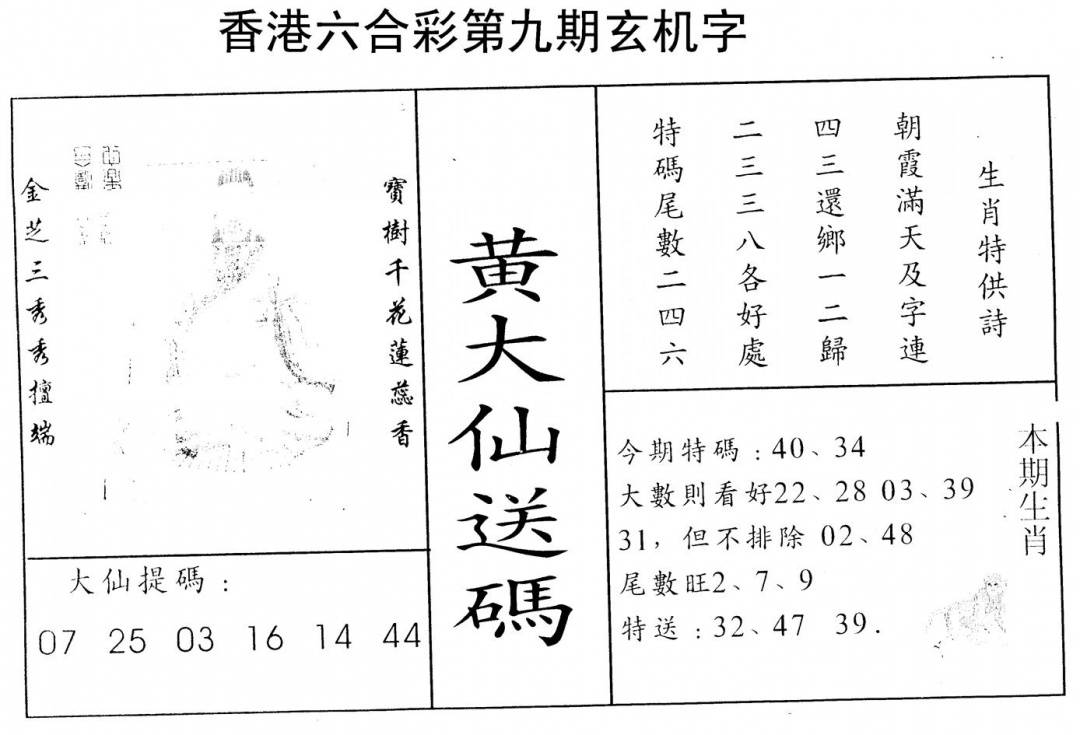 香港六合彩第九期玄机字
生肖特供詩
朝霞滿天及字連
四三還鄉一二歸
二三三八各好處
特碼尾數二四六
黄大仙送碼
寶樹千花蓮蕊香
金芝三秀秀擅端
大仙提碼：
07 25 03 16 14 44
本期生肖
今期特碼：40、34
大數則看好22、28 03、39
31，但不排除 02、48
尾數旺2、7、9
特送：32、47 39.